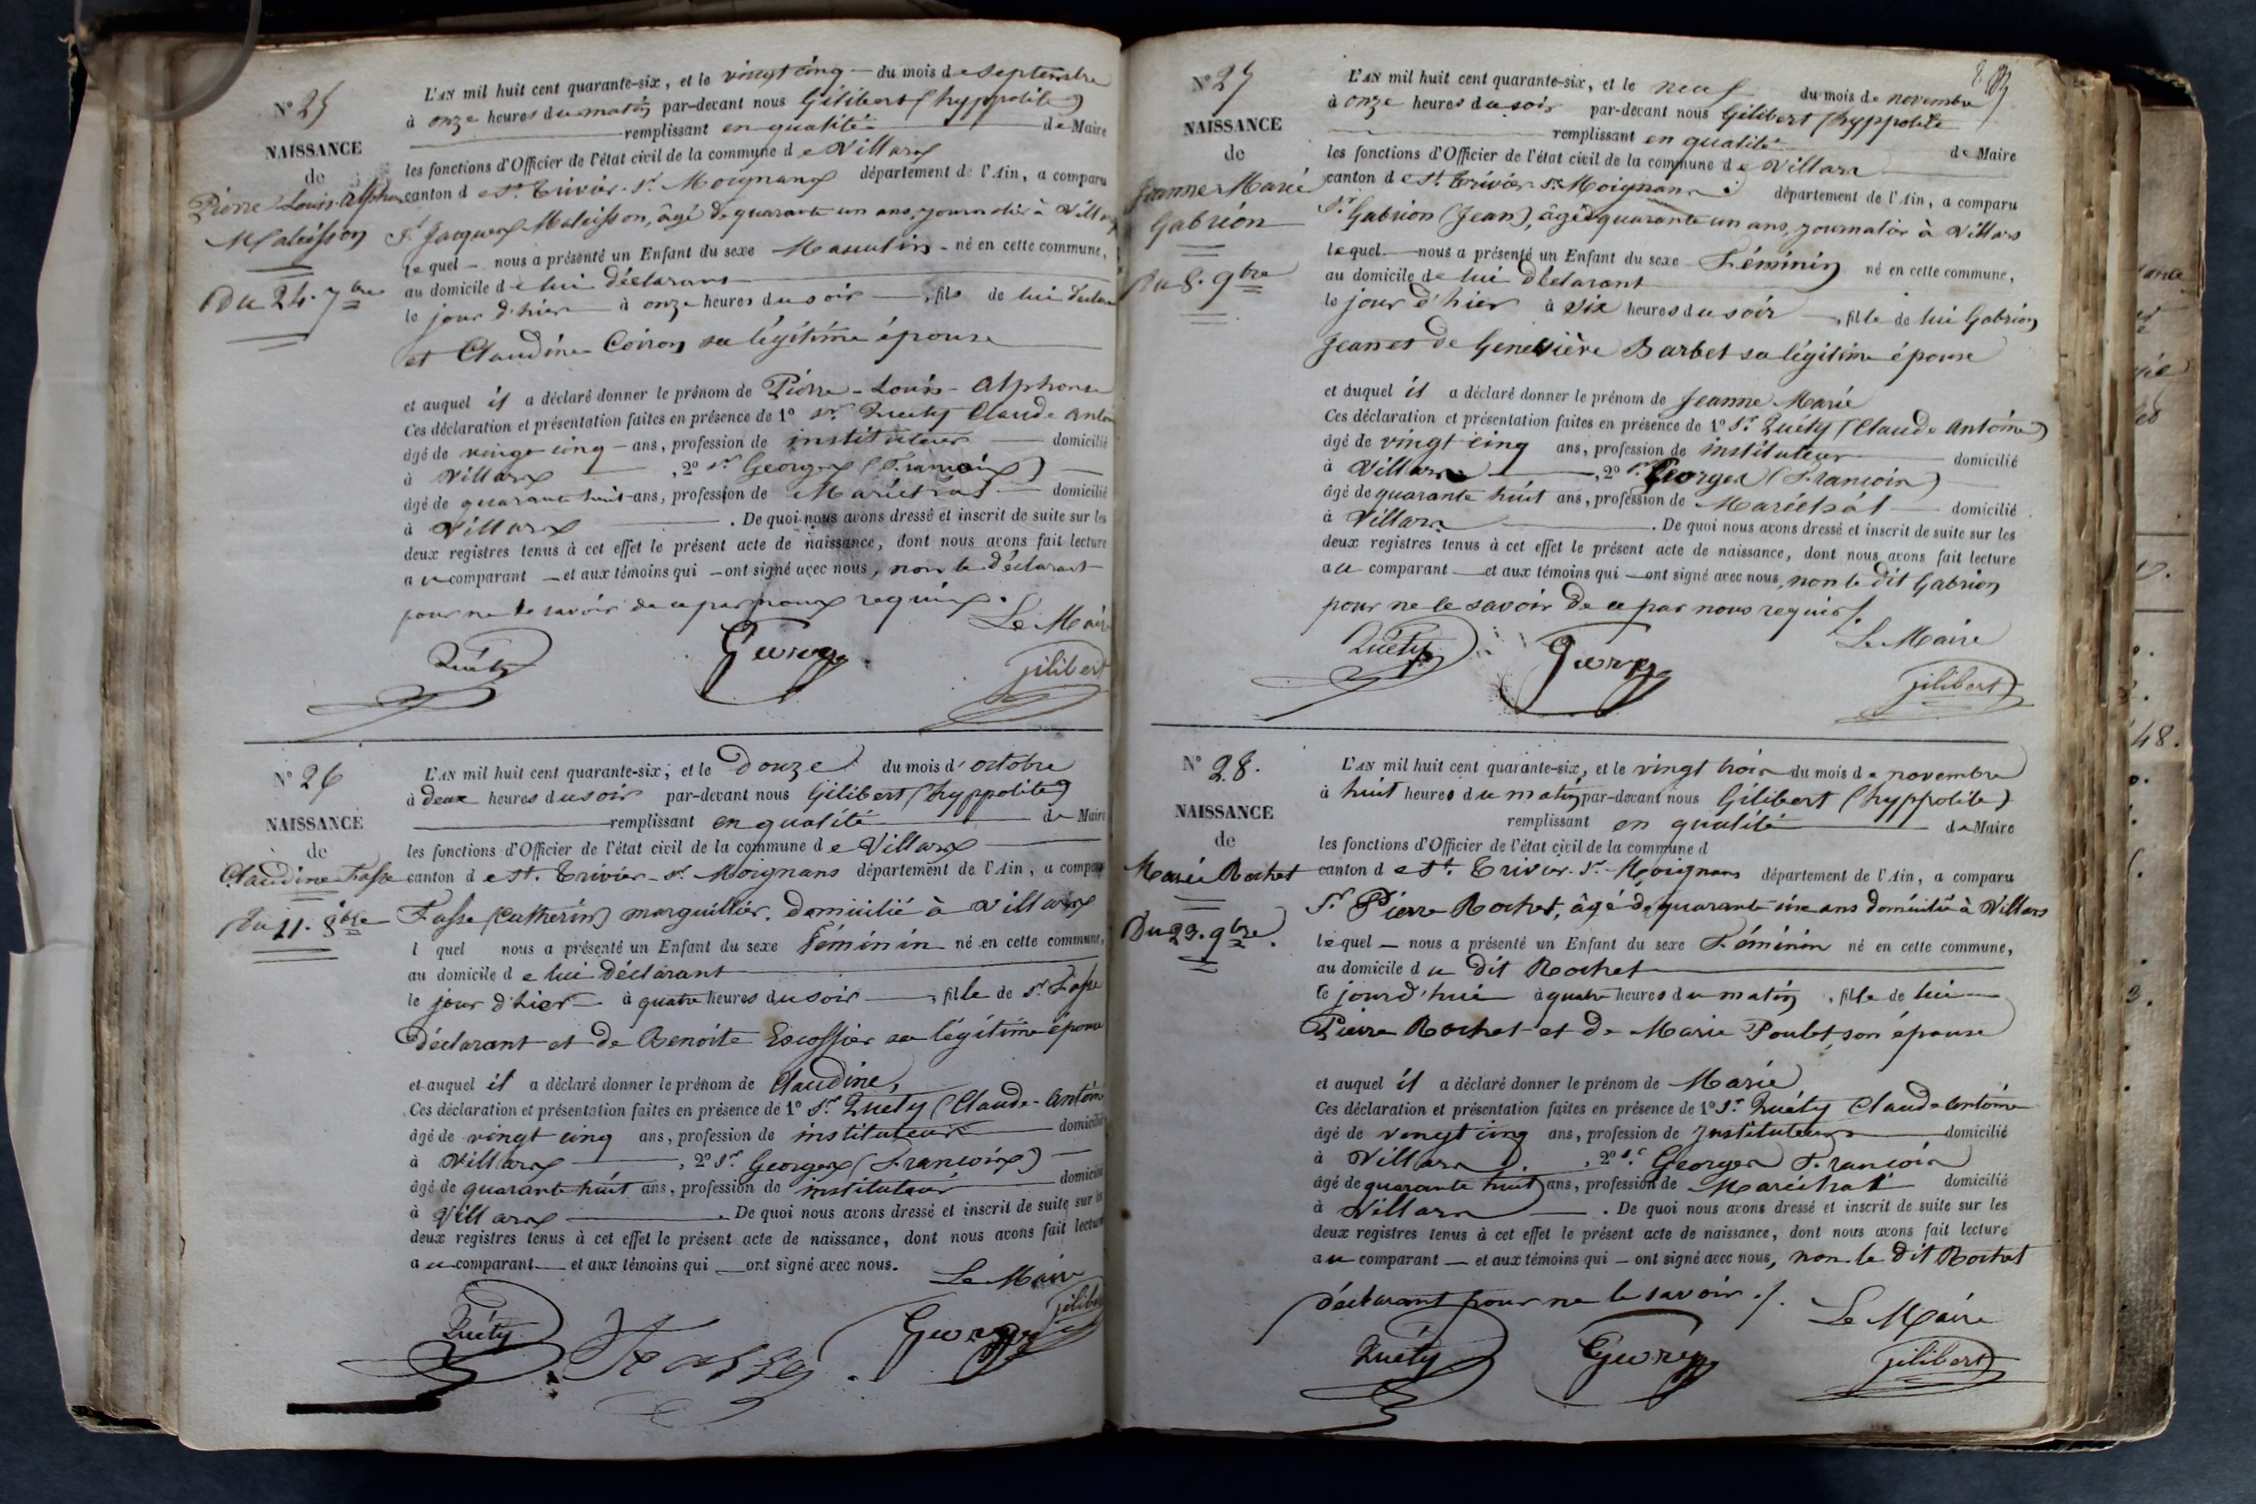 N° 25
NAISSANCE
de
Pierre Louis Alphon
Maleisson
Du 24. 7bre
L'AN mil huit cent quarante-six, et le vingt cinq — du mois de septembre
à onze heures du matin par-devant nous Gilibert (hyppolite)
remplissant en qualité de Maire
les fonctions d'Officier de l'état civil de la commune de Villars
canton de St. Trivier sr. Moignans département de l'Ain, a comparu
Sr. Jacques Maleisson, âgé de quarante un ans, journalier à Villars
lequel — nous a présenté un Enfant du sexe Masculin - né en cette commune,
au domicile de lui déclarant
le jour d'hier à onze heures du soir —, fils de lui déclar
et Claudine Coiron sa légitime épouse
et auquel il a déclaré donner le prénom de Pierre - Louis - Alphonse
Ces déclaration et présentation faites en présence de 1° sr. Quéty Claude Anton
âgé de vingt cinq — ans, profession de instituteur — domicilié
à Villars —, 2° sr Georges (François) —
âgé de quarante huit ans, profession de Maréchal — domicilié
à Villars — . De quoi nous avons dressé et inscrit de suite sur les
deux registres tenus à cet effet le présent acte de naissance, dont nous avons fait lecture
au comparant — et aux témoins qui — ont signé avec nous, non le déclarant
pour ne le savoir de ce par nous requis.
Le Maire
Quéty Georges Gilibert
N° 26
NAISSANCE
de
Claudine Fasse
Du 11. 8bre
L'AN mil huit cent quarante-six, et le Douze du mois d'octobre
à deux heures du soir par-devant nous Gilibert (hyppolite)
remplissant en qualité de Maire
les fonctions d'Officier de l'état civil de la commune de Villars
canton de St. Trivier - sr. Moignans département de l'Ain, a comparu
Fasse (Catherin) marguillier, domicilié à Villars
l quel nous a présenté un Enfant du sexe Féminin né en cette commune,
au domicile de lui déclarant
le jour d'hier — à quatre heures du soir —, fille de sr. Fasse
déclarant et de Benoite Escoffier sa légitime épouse
et auquel il a déclaré donner le prénom de Claudine,
Ces déclaration et présentation faites en présence de 1° Sr. Quéty (Claude - Antoin
âgé de vingt cinq ans, profession de instituteur — domicilié
à Villars —, 2° Sr. Georges (François) —
âgé de quarante huit ans, profession de instituteur domicilié
à Villars — . De quoi nous avons dressé et inscrit de suite sur les
deux registres tenus à cet effet le présent acte de naissance, dont nous avons fait lecture
au comparant — et aux témoins qui — ont signé avec nous.
Le Maire
Quéty Fasse Georges Gilibert
N° 27
NAISSANCE
de
Jeanne Marie
Gabrion
Du 8. 9bre
L'AN mil huit cent quarante-six, et le neuf du mois de novembre
à onze heures du soir par-devant nous Gilibert (hyppolite
remplissant en qualité de Maire
les fonctions d'Officier de l'état civil de la commune de Villars
canton de St. Trivier sr. Moignans département de l'Ain, a comparu
Sr. Gabrion (Jean), âgé de quarante un ans, journalier à Villars
lequel — nous a présenté un Enfant du sexe Féminin né en cette commune,
au domicile de lui déclarant
le jour d'hier à six heures du soir —, fille de lui Gabrion
Jean et de Geneviève Barbet sa légitime épouse
et auquel il a déclaré donner le prénom de Jeanne Marie
Ces déclaration et présentation faites en présence de 1° Sr. Quéty (Claude Antoine)
âgé de vingt cinq ans, profession de instituteur — domicilié
à Villars —, 2° sr. Georges (François)
âgé de quarante huit ans, profession de Maréchal — domicilié
à Villars — . De quoi nous avons dressé et inscrit de suite sur les
deux registres tenus à cet effet le présent acte de naissance, dont nous avons fait lecture
au comparant — et aux témoins qui — ont signé avec nous, non le dit Gabrion
pour ne le savoir de ce par nous requis /.
Le Maire
Quéty Georges Gilibert
N° 28.
NAISSANCE
de
Marie Rochet
Du 23. 9bre.
L'AN mil huit cent quarante-six, et le vingt trois du mois de novembre
à huit heures du matin par-devant nous Gilibert (hyppolite)
remplissant en qualité de Maire
les fonctions d'Officier de l'état civil de la commune d
canton de St. Trivier - sr. Moignans département de l'Ain, a comparu
Sr. Pierre Rochet, âgé de quarante six ans domicilié à Villars
lequel — nous a présenté un Enfant du sexe Féminin né en cette commune,
au domicile du dit Rochet
le jourd'hui à quatre heures du matin, fille de lui
Pierre Rochet et de Marie Poulet, son épouse
et auquel il a déclaré donner le prénom de Marie
Ces déclaration et présentation faites en présence de 1° Sr. Quéty Claude antoine
âgé de vingt cinq ans, profession de Instituteur — domicilié
à Villars, 2° sr. Georges François
âgé de quarante huit ans, profession de Maréchal domicilié
à Villars — . De quoi nous avons dressé et inscrit de suite sur les
deux registres tenus à cet effet le présent acte de naissance, dont nous avons fait lecture
au comparant — et aux témoins qui — ont signé avec nous, non le dit Rochet
déclarant pour ne le savoir ./.
Le Maire
Quéty Georges Gilibert